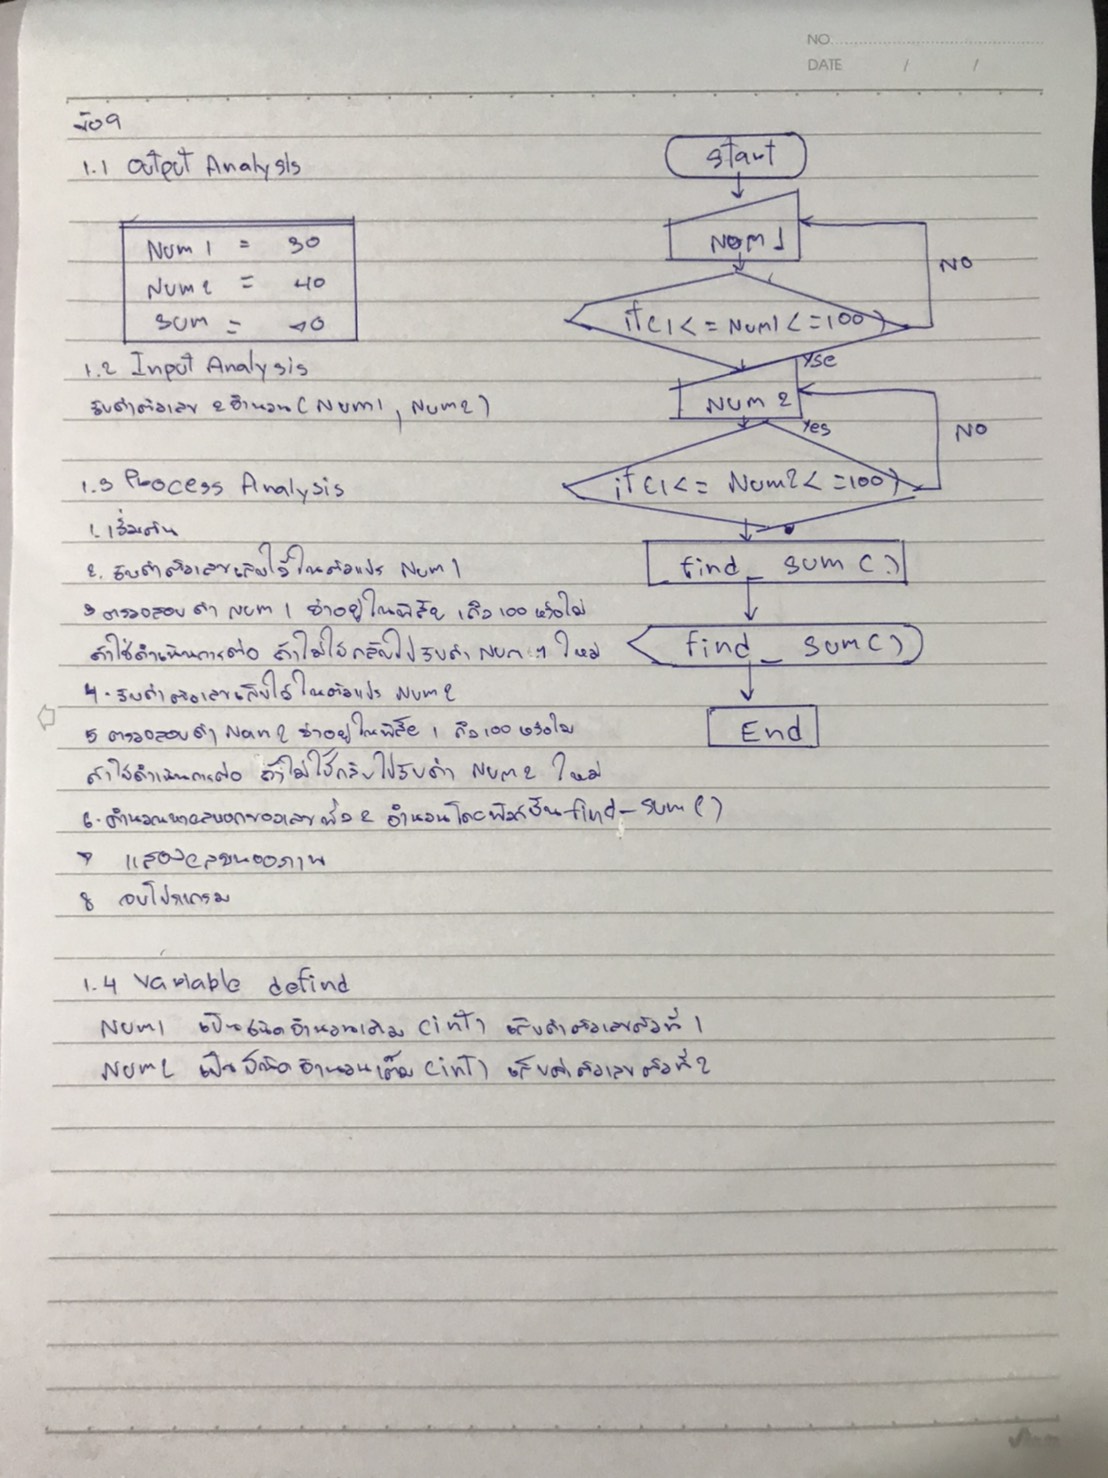 NO.
DATE / /
ข้อ 9
1.1 Output Analysis
Num 1 = 30
Num 2 = 40
Sum = 70
1.2 Input Analysis
รับค่าตัวเลข 2 จำนวน ( Num1 , Num2 )
1.3 Process Analysis
1. เริ่มต้น
2. รับค่าตัวเลขเก็บไว้ในตัวแปร Num 1
3 ตรวจสอบค่า Num 1 ว่าอยู่ในพิสัย 1 ถึง 100 หรือไม่
ถ้าใช่ดำเนินการต่อ ถ้าไม่ใช่กลับไปรับค่า Num 1 ใหม่
4. รับค่าตัวเลขเก็บไว้ในตัวแปร Num2
5 ตรวจสอบค่า Num 2 ว่าอยู่ในพิสัย 1 ถึง 100 หรือไม่
ถ้าใช่ดำเนินการต่อ ถ้าไม่ใช่กลับไปรับค่า Num 2 ใหม่
6. คำนวณหาผลบวกของเลขทั้ง 2 จำนวนโดยฟังก์ชัน find_sum ( )
7 แสดงผลบนจอภาพ
8 จบโปรแกรม
1.4 Variable defind
Num1 เป็นชนิดจำนวนเต็ม (int) เก็บค่าตัวเลขตัวที่ 1
Num2 เป็นชนิดจำนวนเต็ม (int) เก็บค่าตัวเลขตัวที่ 2
start
Num 1
NO
if (1 < = Num1 < = 100 )
Yse
Num 2
Yes
NO
if (1 < = Num2 < = 100 )
find _ sum ( )
find _ sum ( )
End